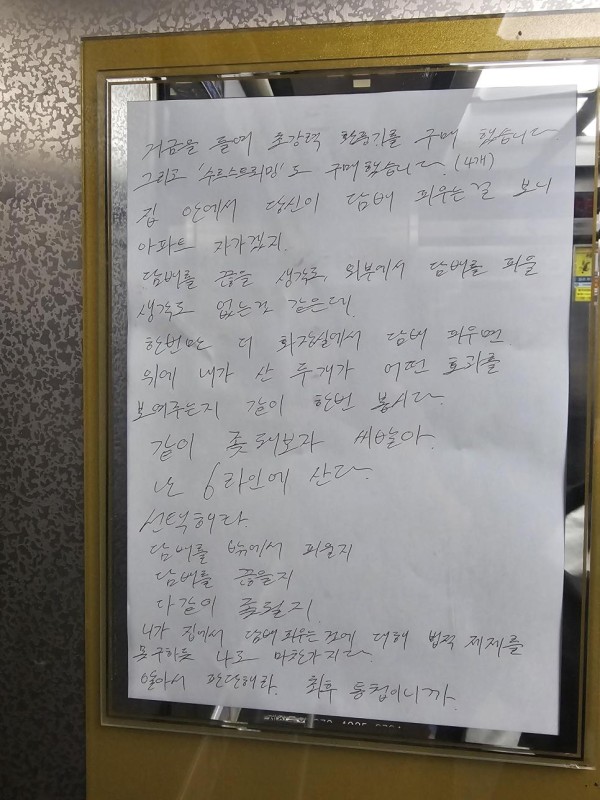 거금을 들여 초강력 환풍기를 구매 했습니다
그리고 '수르스트뢰밍'도 구매했습니다. (4개)
집 안에서 당신이 담배 피우는걸 보니
아파트 자가겠지.
담배를 끊을 생각도, 외부에서 담배를 피울
생각도 없는것 같은데.
한번만 더 화장실에서 담배 피우면
위에 내가 산 두개가 어떤 효과를
보여주는지 같이 한번 봅시다.
같이 좆돼보자 씨발아.
난 6라인에 산다.
선택해라.
담배를 밖에서 피울지
담배를 끊을지
다같이 좆될지
니가 집에서 담배 피우는 것에 대해 법적 제제를
못 구하듯 나도 마찬가지다.
알아서 판단해라. 최후 통첩이니까.